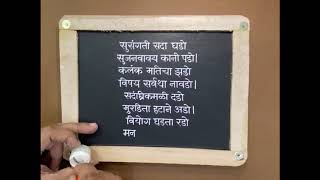 सुसंगती सदा घडो
सुजनवाक्य कानी पडो।
कलंक मतिचा झडो
विषय सर्वथा नावडो।
सदंघ्रिकमळी दडो
मुरडिता हटाने अडो।
वियोग घडता रडो
मन